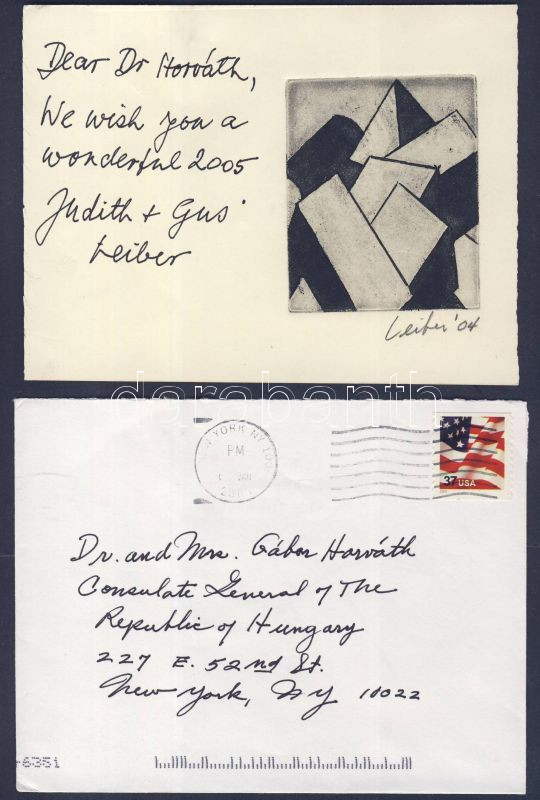 Dear Dr Horváth,
We wish you a
wonderful 2005
Judith + Gus
Leiber
Leiber '04
darabanth
NEW YORK NY 100
PM
JAN
37 USA
Dr. and Mrs. Gábor Horváth
Consulate General of The
Republic of Hungary
227 E. 52nd St.
New York, NY 10022
6351